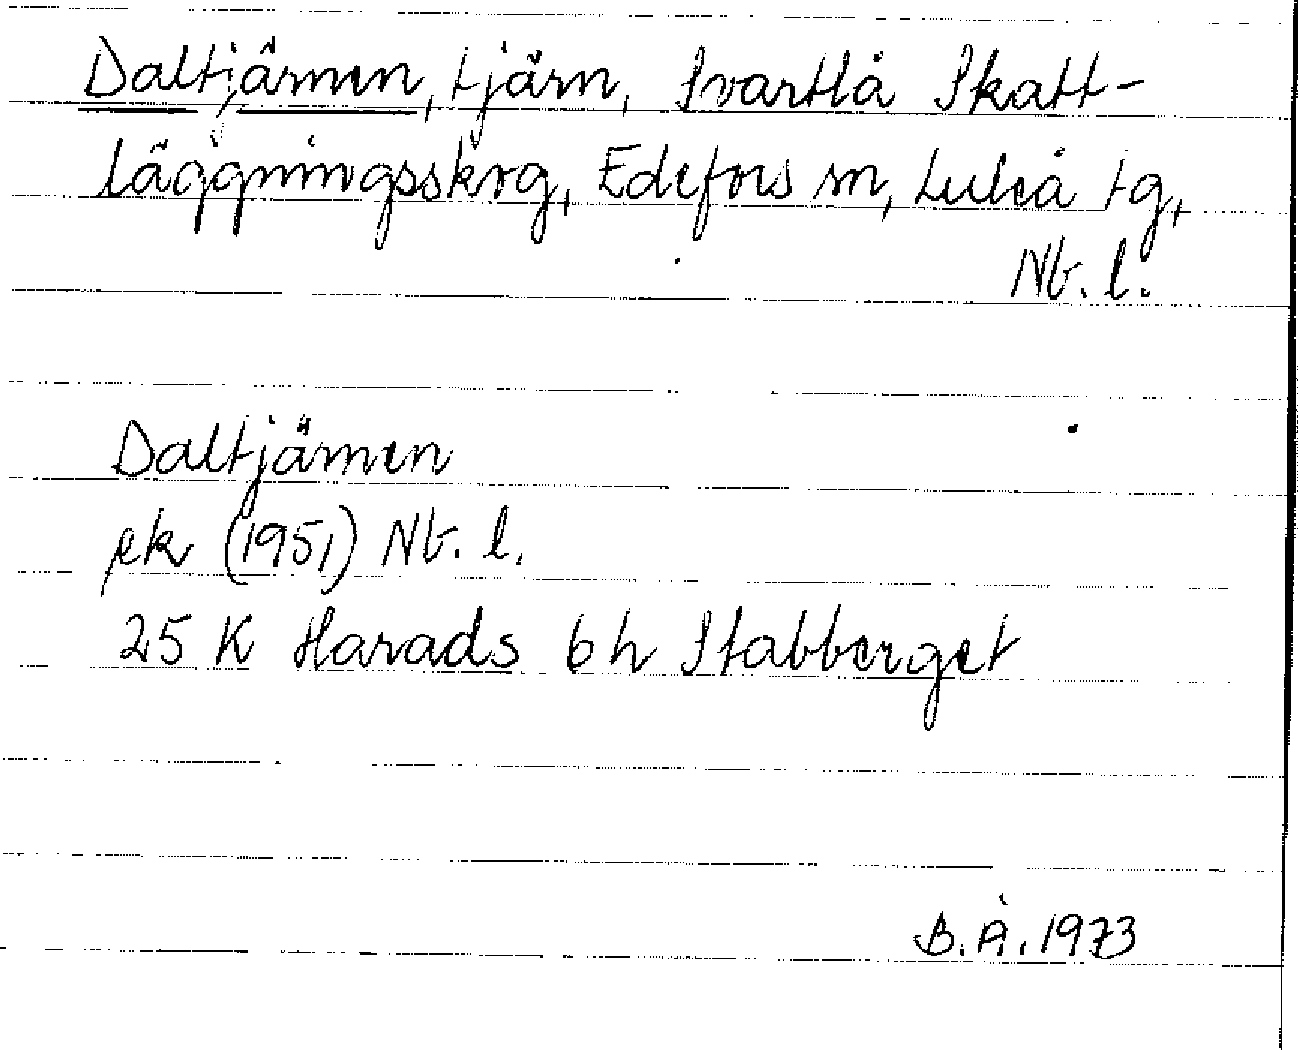 Daltjärnen, tjärn, Svartlå Skatt-
läggningsskrg, Edefors sn, Luleå tg,
Nb. l.
Daltjärnen
ek (1951) Nb. l.
25 K Harads 6 h Stabberget
B.Å. 1973